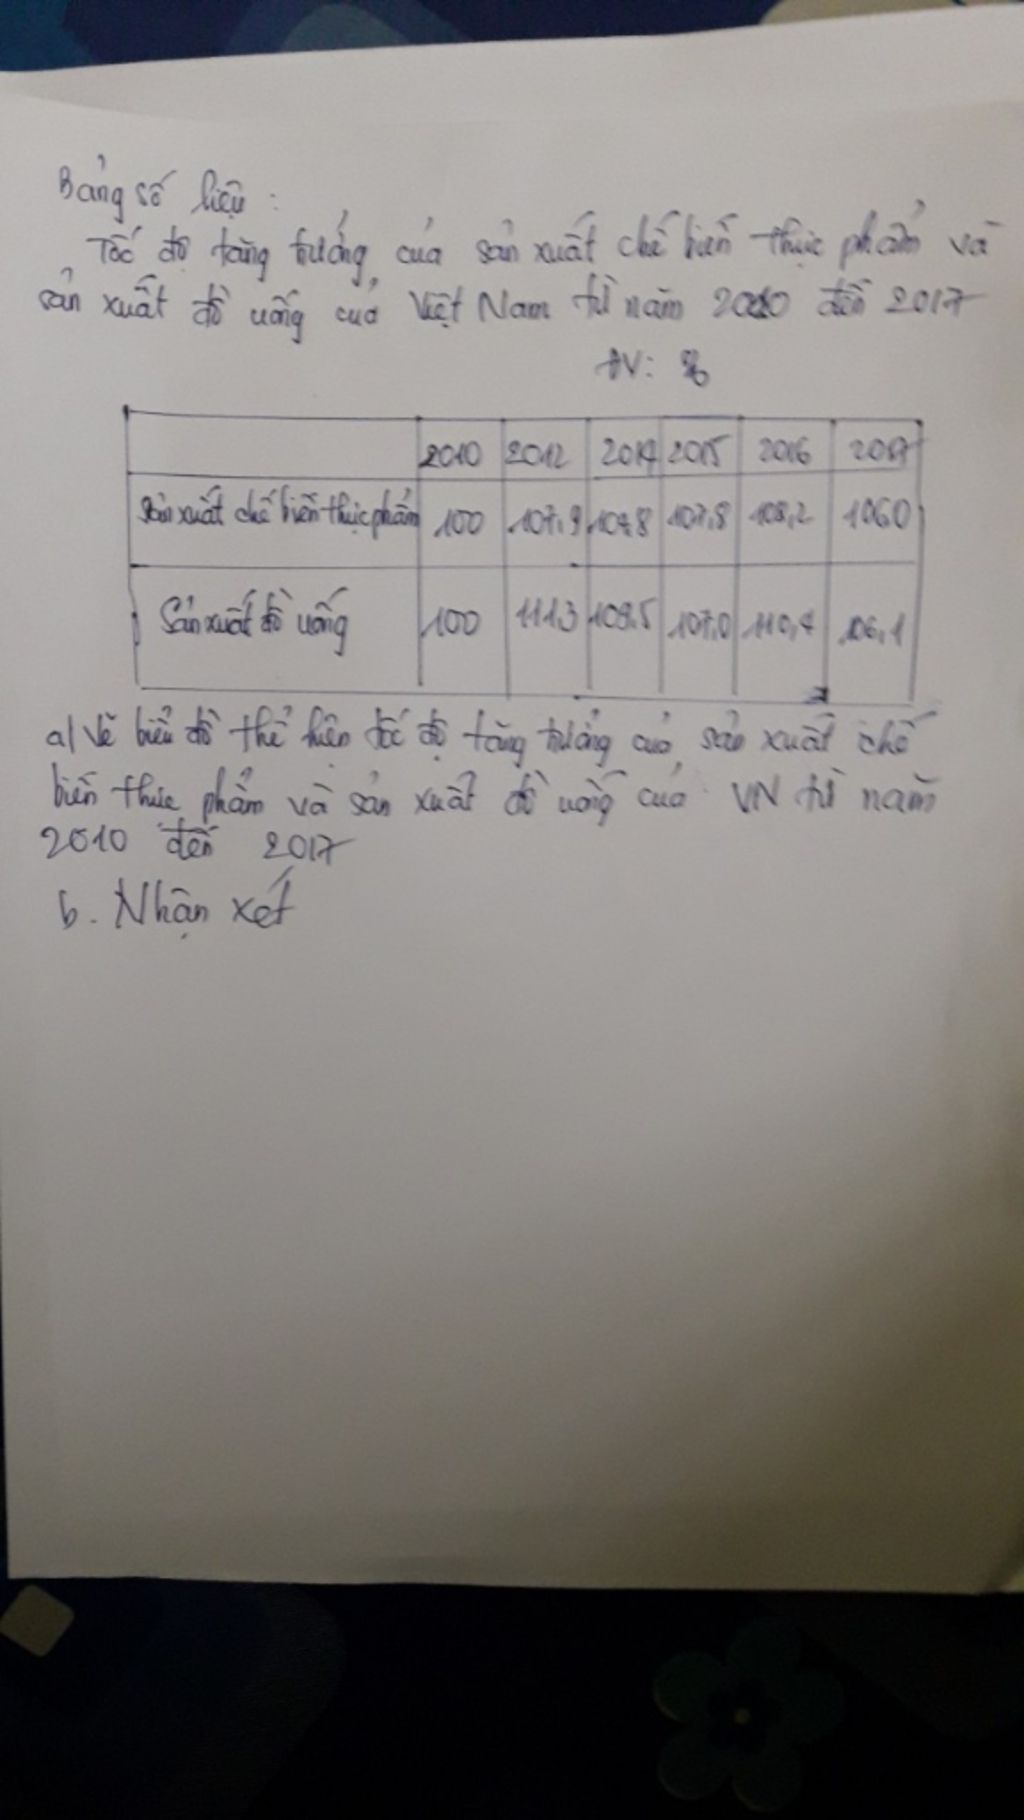 Bảng số liệu :
Tốc độ tăng trưởng của sản xuất chế biến thực phẩm và
sản xuất đồ uống của Việt Nam từ năm 2010 đến 2017
ĐV: %
2010 2012 2014 2015 2016 2017
Sản xuất chế biến thực phẩm 100 107,9 107,8 108,2 106,0
Sản xuất đồ uống 100 111,3 109,5 107,0 110,4 106,1
a/ Vẽ biểu đồ thể hiện tốc độ tăng trưởng của sản xuất chế
biến thực phẩm và sản xuất đồ uống của VN từ năm
2010 đến 2017
b. Nhận xét